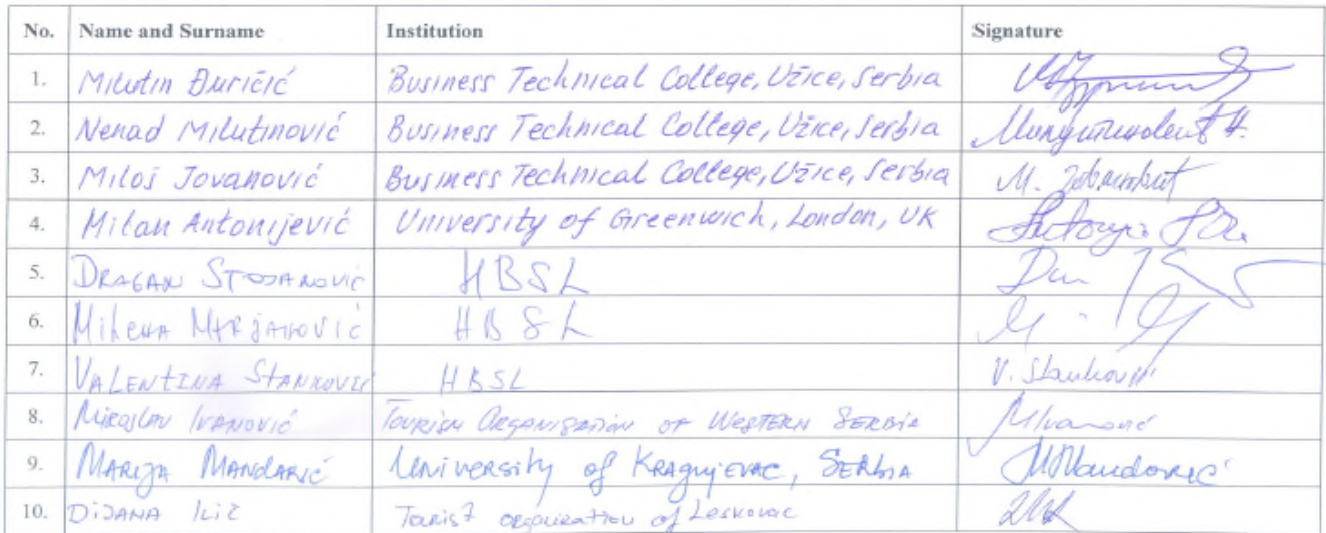 No. Name and Surname Institution Signature
1. Milutin Đuričić Business Technical College, Užice, Serbia
2. Nenad Milutinović Business Technical College, Užice, Serbia
3. Miloš Jovanović Business Technical College, Užice, Serbia M.
4. Milan Antonijević University of Greenwich, London, UK
5. DRAGAN STOJANOVIĆ HBSL
6. MILENA MARJANOVIĆ HBSL
7. VALENTINA STANKOVIĆ HBSL V. Stanković
8. MIROSLAV IVANOVIĆ TOURISM ORGANISATION OF WESTERN SERBIA MIvanović
9. MARIJA MANDARIĆ University of KRAGUJEVAC, SERBIA MMandarić
10. DIJANA ILIĆ Tourist organization of Leskovac